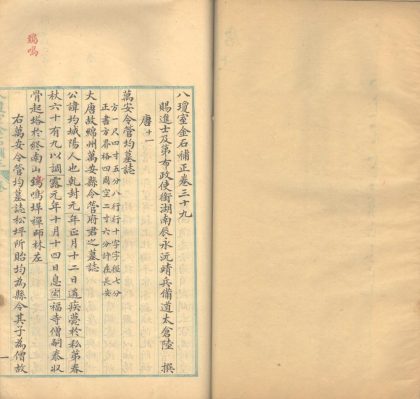 鵄鳴
八瓊室金石補正卷三十九
賜進士及第布政使銜湖南辰永沅靖兵備道太倉陸 撰
唐十一
萬安令管均墓誌
方一尺四寸五分八行行十字字徑七分
正書方界格四周空二寸六分許在長安
大唐故綿州萬安縣令管府君之墓誌
公諱均城陽人也乾封元年正月十二日遘疾薨於私第春
秋六十有九以調露元年十月十四日息
福寺僧嗣泰收
骨起塔於終南山鵄鳴堆禪師林左
右萬安令管均墓誌松坪所貽均為縣令其子為僧故
一